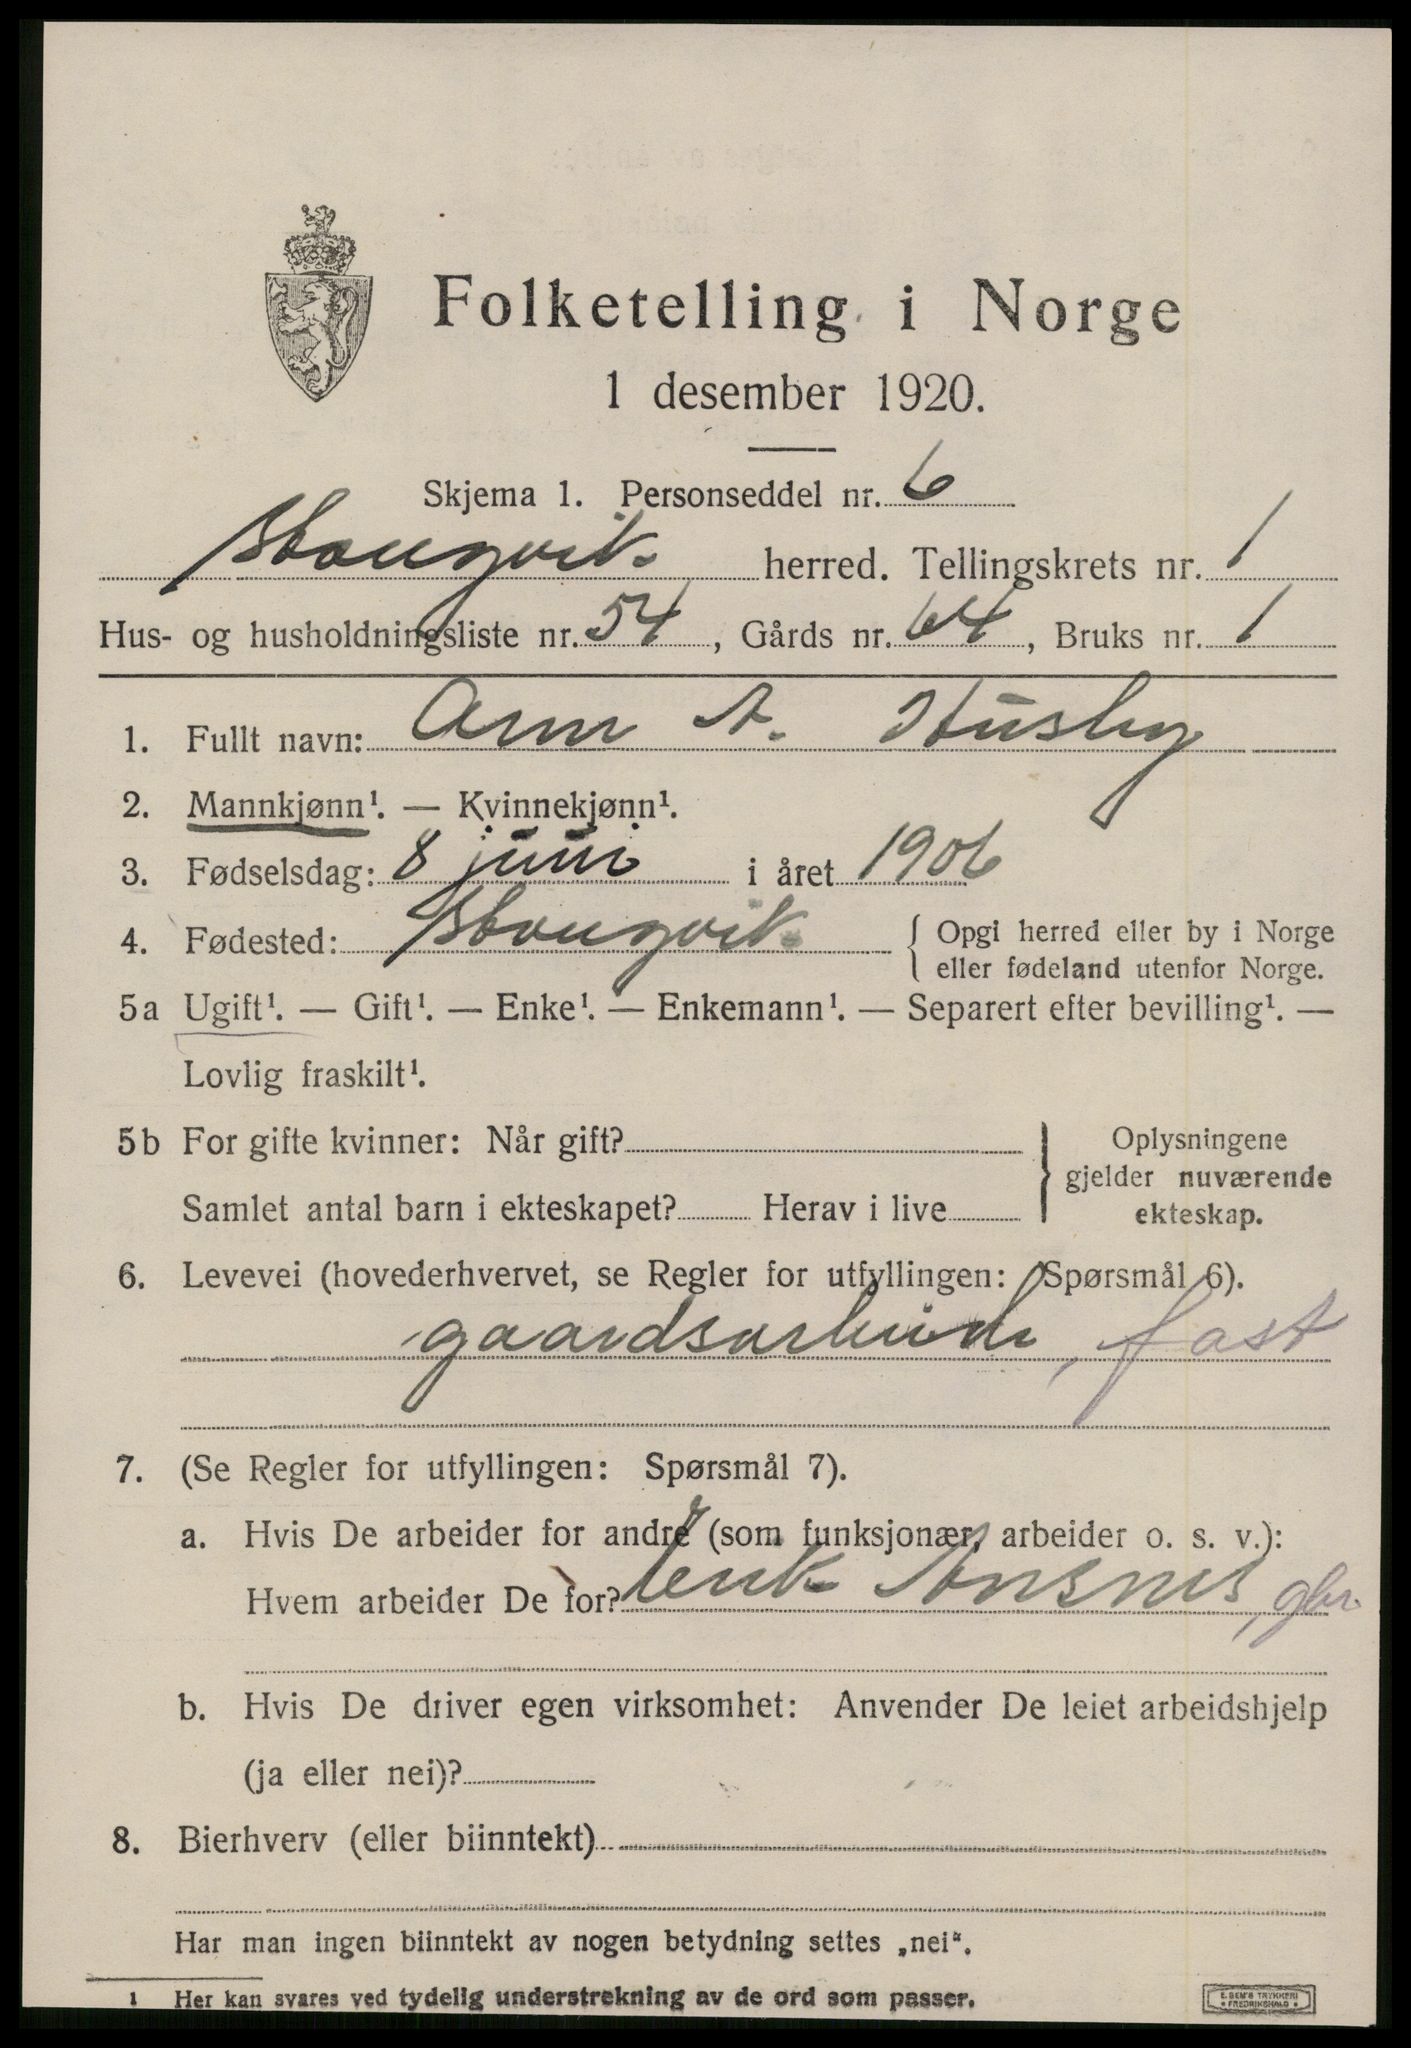 Folketelling i Norge
1 desember 1920.
Skjema 1. Personseddel nr. 6
Stangvik herred. Tellingskrets nr. 1
Hus- og husholdningsliste nr. 54, Gårds nr. 64, Bruks nr. 1
1. Fullt navn: Arne A. Husby
2. Mannkjønn¹. — Kvinnekjønn¹.
3. Fødselsdag: 8 juni i året 1906
4. Fødested: Stangvik { Opgi herred eller by i Norge
eller fødeland utenfor Norge.
5a Ugift¹. — Gift¹. — Enke¹. — Enkemann¹. — Separert efter bevilling¹. —
Lovlig fraskilt¹.
5b For gifte kvinner: Når gift? } Oplysningene
gjelder nuværende
Samlet antal barn i ekteskapet? Herav i live ekteskap.
6. Levevei (hovederhvervet, se Regler for utfyllingen: Spørsmål 6).
gaardsarbeide, fast
7. (Se Regler for utfyllingen: Spørsmål 7).
a. Hvis De arbeider for andre (som funksjonær, arbeider o. s. v.):
Hvem arbeider De for? Erik Aasnes, gbr.
b. Hvis De driver egen virksomhet: Anvender De leiet arbeidshjelp
(ja eller nei)?
8. Bierhverv (eller biinntekt)
Har man ingen biinntekt av nogen betydning settes „nei".
1 Her kan svares ved tydelig understrekning av de ord som passer.
E. SEM'S TRYKKERI
FREDRIKSHALD